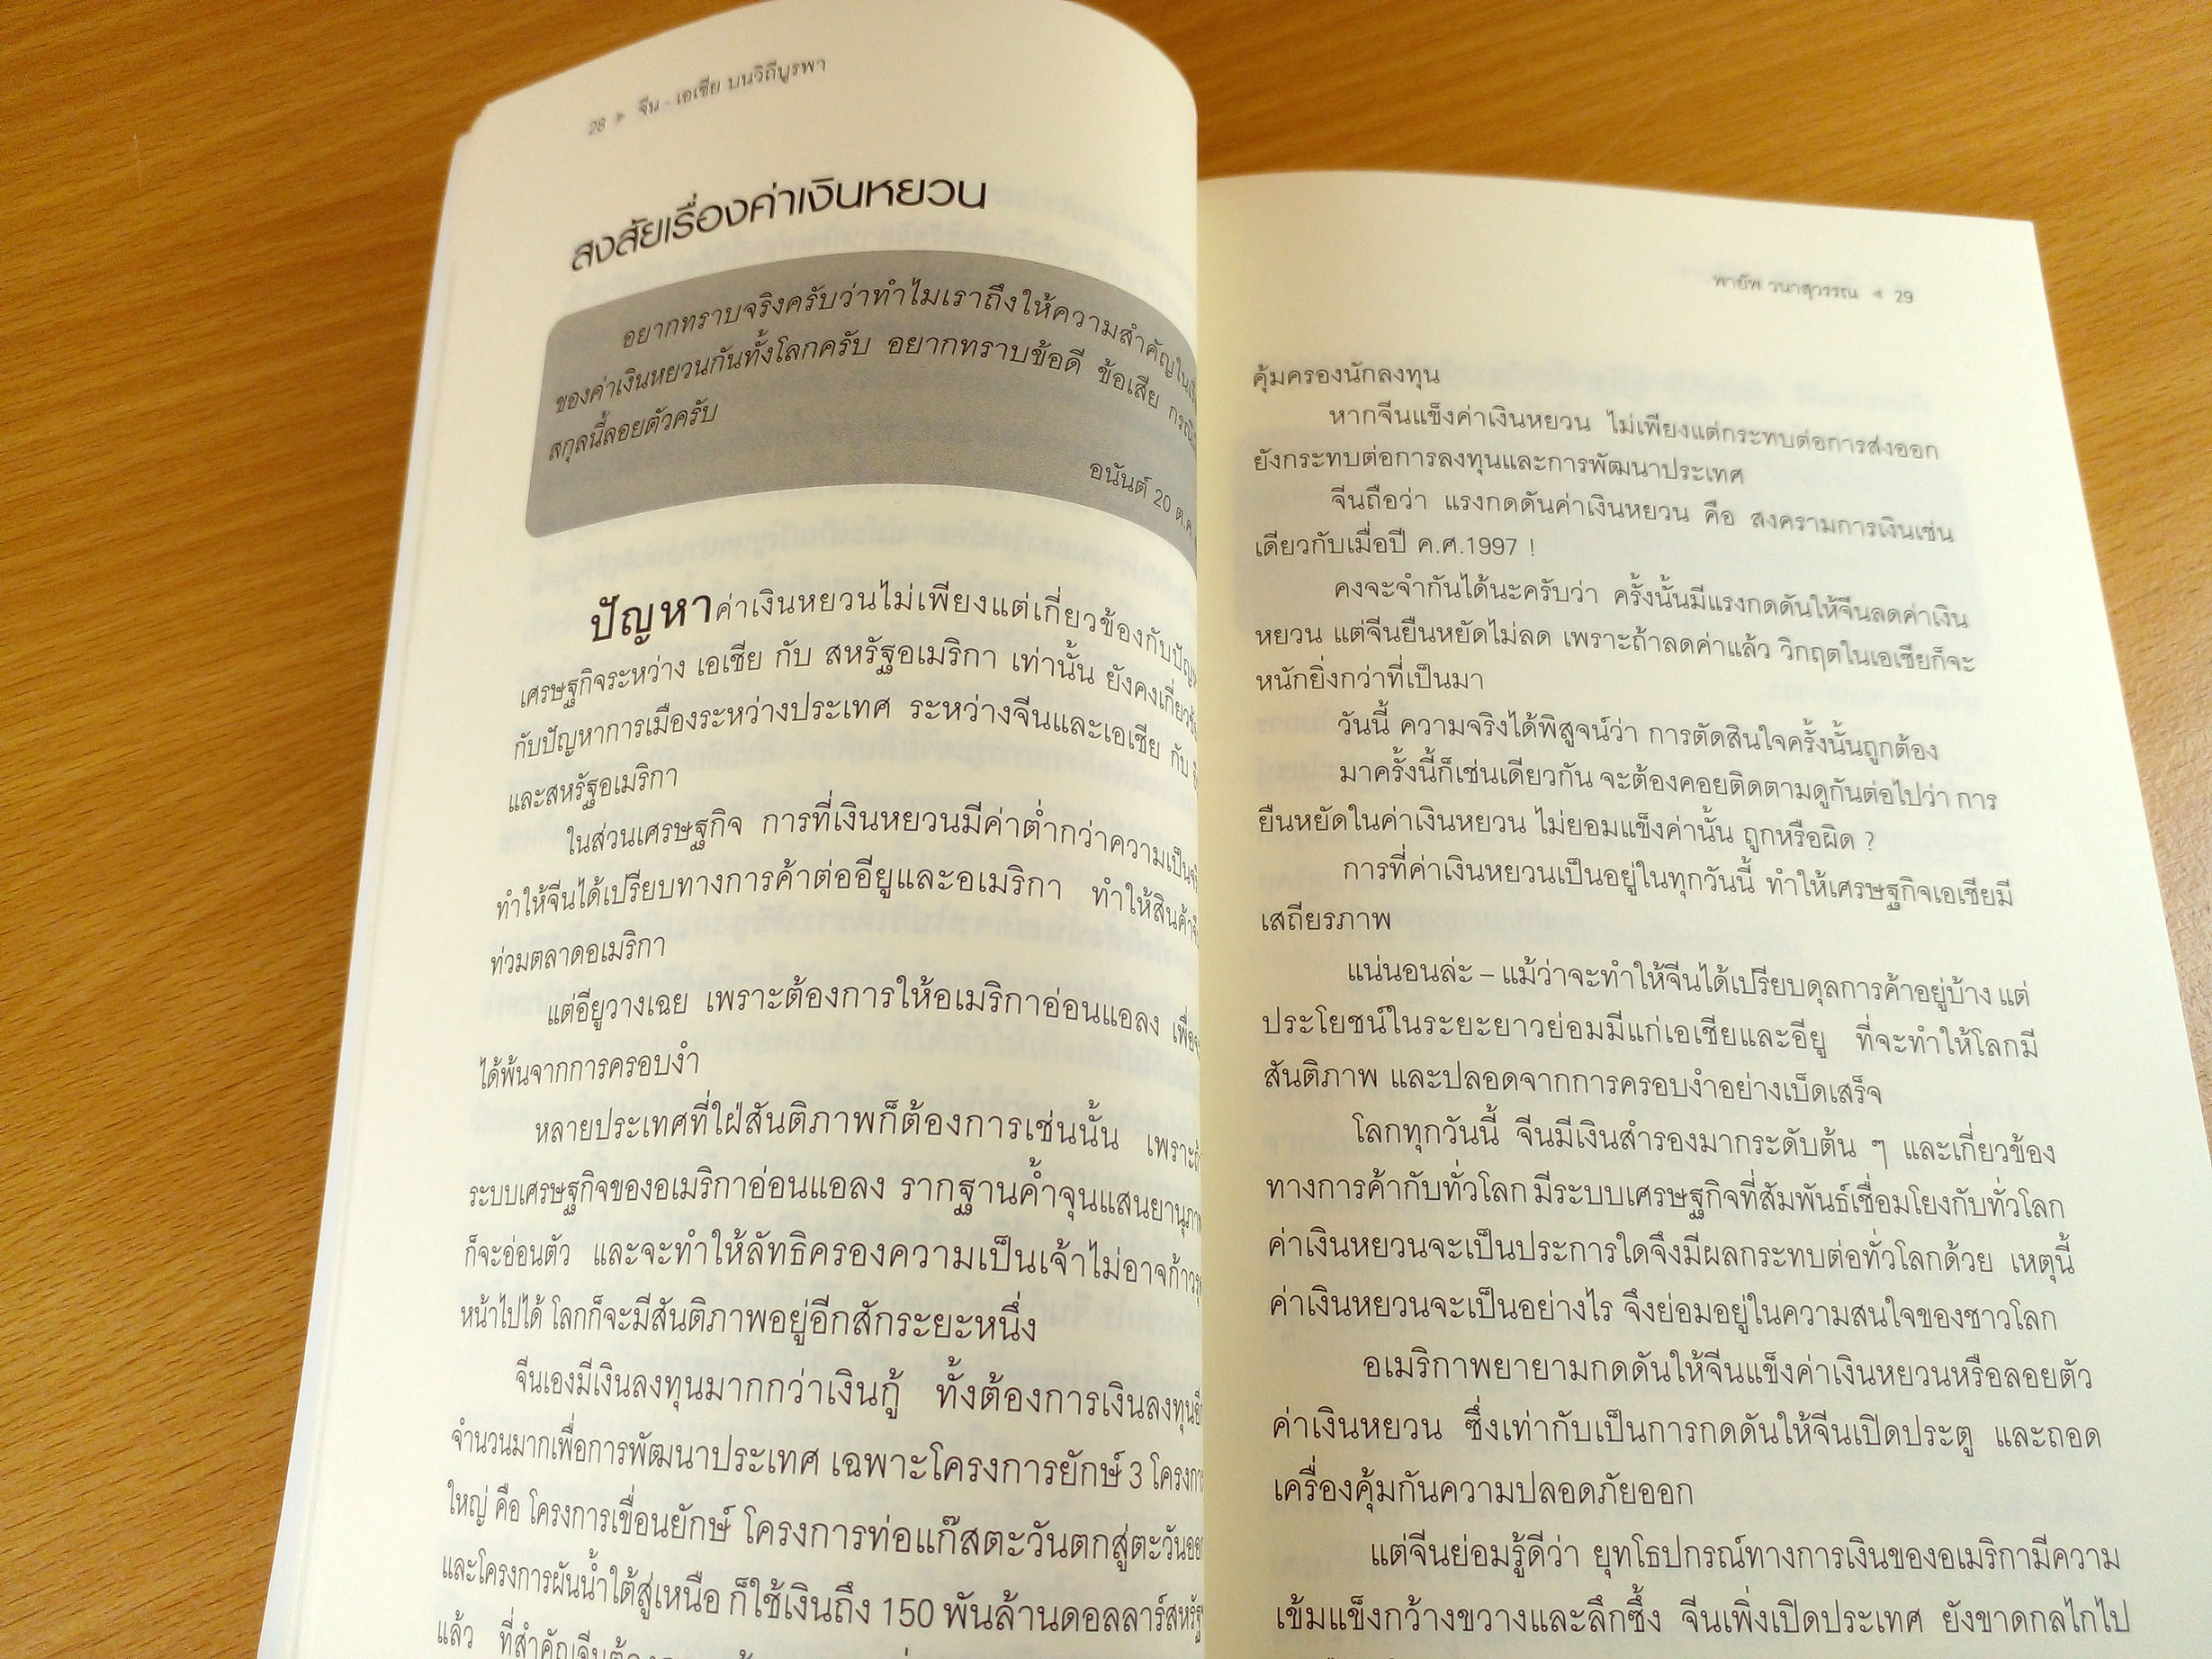 28 ▸ จีน - เอเชีย บนวิถีบูรพา
สงสัยเรื่องค่าเงินหยวน
อยากทราบจริงครับว่าทำไมเราถึงให้ความสำคัญใน
ของค่าเงินหยวนกันทั้งโลกครับ อยากทราบข้อดี ข้อเสีย
สกุลนี้ลอยตัวครับ
อนันต์ 20 ต.ค.
ปัญหาค่าเงินหยวนไม่เพียงแต่เกี่ยวข้องกับ
เศรษฐกิจระหว่าง เอเชีย กับ สหรัฐอเมริกา เท่านั้น
กับปัญหาการเมืองระหว่างประเทศ ระหว่างจีนและเอเชีย กับ
และสหรัฐอเมริกา
ในส่วนเศรษฐกิจ การที่เงินหยวนมีค่าต่ำกว่าความเป็น
ทำให้จีนได้เปรียบทางการค้าต่ออียูและอเมริกา ทำให้สินค้า
ท่วมตลาดอเมริกา
แต่อียูวางเฉย เพราะต้องการให้อเมริกาอ่อนแอลง
ได้พ้นจากการครอบงำ
หลายประเทศที่ใฝ่สันติภาพก็ต้องการเช่นนั้น เพราะ
ระบบเศรษฐกิจของอเมริกาอ่อนแอลง รากฐานค้ำจุนแสนยานุภาพ
ก็จะอ่อนตัว และจะทำให้ลัทธิครองความเป็นเจ้าไม่อาจ
หน้าไปได้ โลกก็จะมีสันติภาพอยู่อีกสักระยะหนึ่ง
จีนเองมีเงินลงทุนมากกว่าเงินกู้ ทั้งต้องการเงินลงทุน
จำนวนมากเพื่อการพัฒนาประเทศ เฉพาะโครงการยักษ์ 3
ใหญ่ คือ โครงการเขื่อนยักษ์ โครงการท่อแก๊สตะวันตกสู่
และโครงการผันน้ำใต้สู่เหนือ ก็ใช้เงินถึง 150 พันล้านดอลลาร์
แล้ว ที่สำคัญ
พายัพ วนาสุวรรณ ◂ 29
คุ้มครองนักลงทุน
หากจีนแข็งค่าเงินหยวน ไม่เพียงแต่กระทบต่อการส่งออก
ยังกระทบต่อการลงทุนและการพัฒนาประเทศ
จีนถือว่า แรงกดดันค่าเงินหยวน คือ สงครามการเงินเช่น
เดียวกับเมื่อปี ค.ศ.1997 !
คงจะจำกันได้นะครับว่า ครั้งนั้นมีแรงกดดันให้จีนลดค่าเงิน
หยวน แต่จีนยืนหยัดไม่ลด เพราะถ้าลดค่าแล้ว วิกฤตในเอเชียก็จะ
หนักยิ่งกว่าที่เป็นมา
วันนี้ ความจริงได้พิสูจน์ว่า การตัดสินใจครั้งนั้นถูกต้อง
มาครั้งนี้ก็เช่นเดียวกัน จะต้องคอยติดตามดูกันต่อไปว่า การ
ยืนหยัดในค่าเงินหยวน ไม่ยอมแข็งค่านั้น ถูกหรือผิด ?
การที่ค่าเงินหยวนเป็นอยู่ในทุกวันนี้ ทำให้เศรษฐกิจเอเชียมี
เสถียรภาพ
แน่นอนล่ะ – แม้ว่าจะทำให้จีนได้เปรียบดุลการค้าอยู่บ้าง แต่
ประโยชน์ในระยะยาวย่อมมีแก่เอเชียและอียู ที่จะทำให้โลกมี
สันติภาพ และปลอดจากการครอบงำอย่างเบ็ดเสร็จ
โลกทุกวันนี้ จีนมีเงินสำรองมากระดับต้น ๆ และเกี่ยวข้อง
ทางการค้ากับทั่วโลก มีระบบเศรษฐกิจที่สัมพันธ์เชื่อมโยงกับทั่วโลก
ค่าเงินหยวนจะเป็นประการใดจึงมีผลกระทบต่อทั่วโลกด้วย เหตุนี้
ค่าเงินหยวนจะเป็นอย่างไร จึงย่อมอยู่ในความสนใจของชาวโลก
อเมริกาพยายามกดดันให้จีนแข็งค่าเงินหยวนหรือลอยตัว
ค่าเงินหยวน ซึ่งเท่ากับเป็นการกดดันให้จีนเปิดประตู และถอด
เครื่องคุ้มกันความปลอดภัยออก
แต่จีนย่อมรู้ดีว่า ยุทโธปกรณ์ทางการเงินของอเมริกามีความ
เข้มแข็งกว้างขวางและลึกซึ้ง จีนเพิ่งเปิดประเทศ ยังขาดกลไกไป